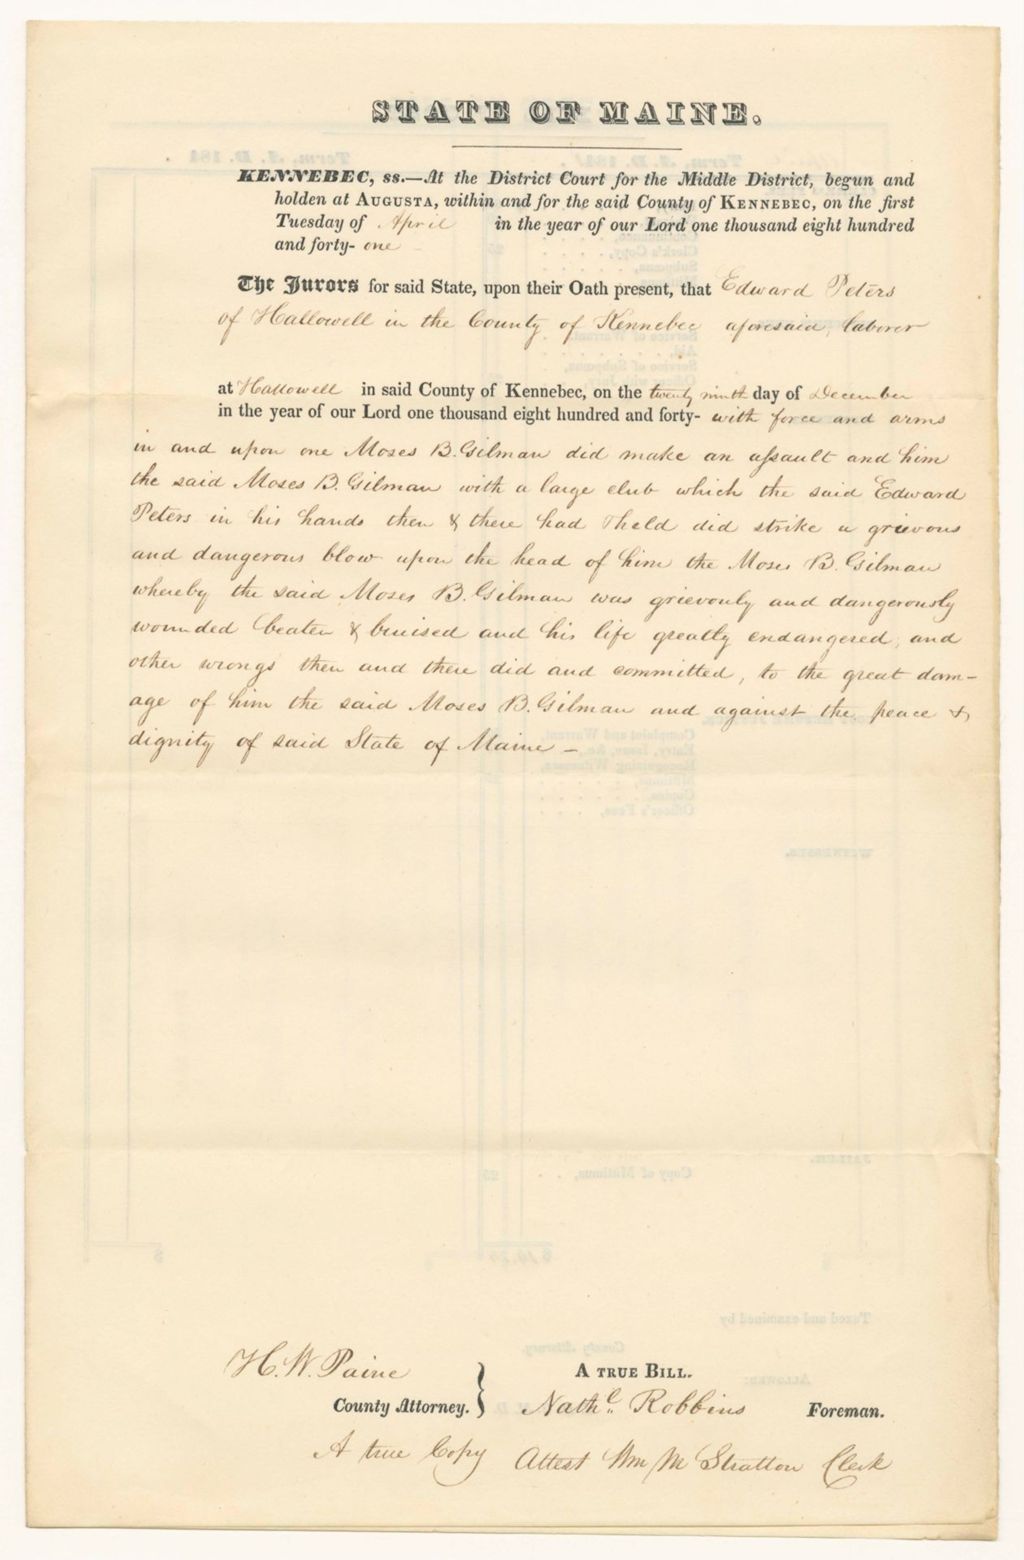 STATE OF MAINE.
KENNEBEC, ss.—At the District Court for the Middle District, begun and
holden at AUGUSTA, within and for the said County of KENNEBEC, on the first
Tuesday of April in the year of our Lord one thousand eight hundred
and forty- one
The Jurors for said State, upon their Oath present, that Edward Peters
of Hallowell in the County of Kennebec aforesaid, laborer
at Hallowell in said County of Kennebec, on the twenty ninth day of December
in the year of our Lord one thousand eight hundred and forty- with force and arms
in and upon one Moses B. Gilman did make an assault and him
the said Moses B. Gilman with a large club which the said Edward
Peters in his hands then & there had & held did strike a grievous
and dangerous blow upon the head of him the Moses B. Gilman
whereby the said Moses B. Gilman was grievously and dangerously
wounded beaten & bruised and his life greatly endangered, and
other wrongs then and there did and committed, to the great dam-
age of him the said Moses B. Gilman and against the peace &
dignity of said State of Maine —
H. W. Paine
County Attorney.
A TRUE BILL.
Nathl. Robbins Foreman.
A true Copy Attest Wm M Stratton Clerk